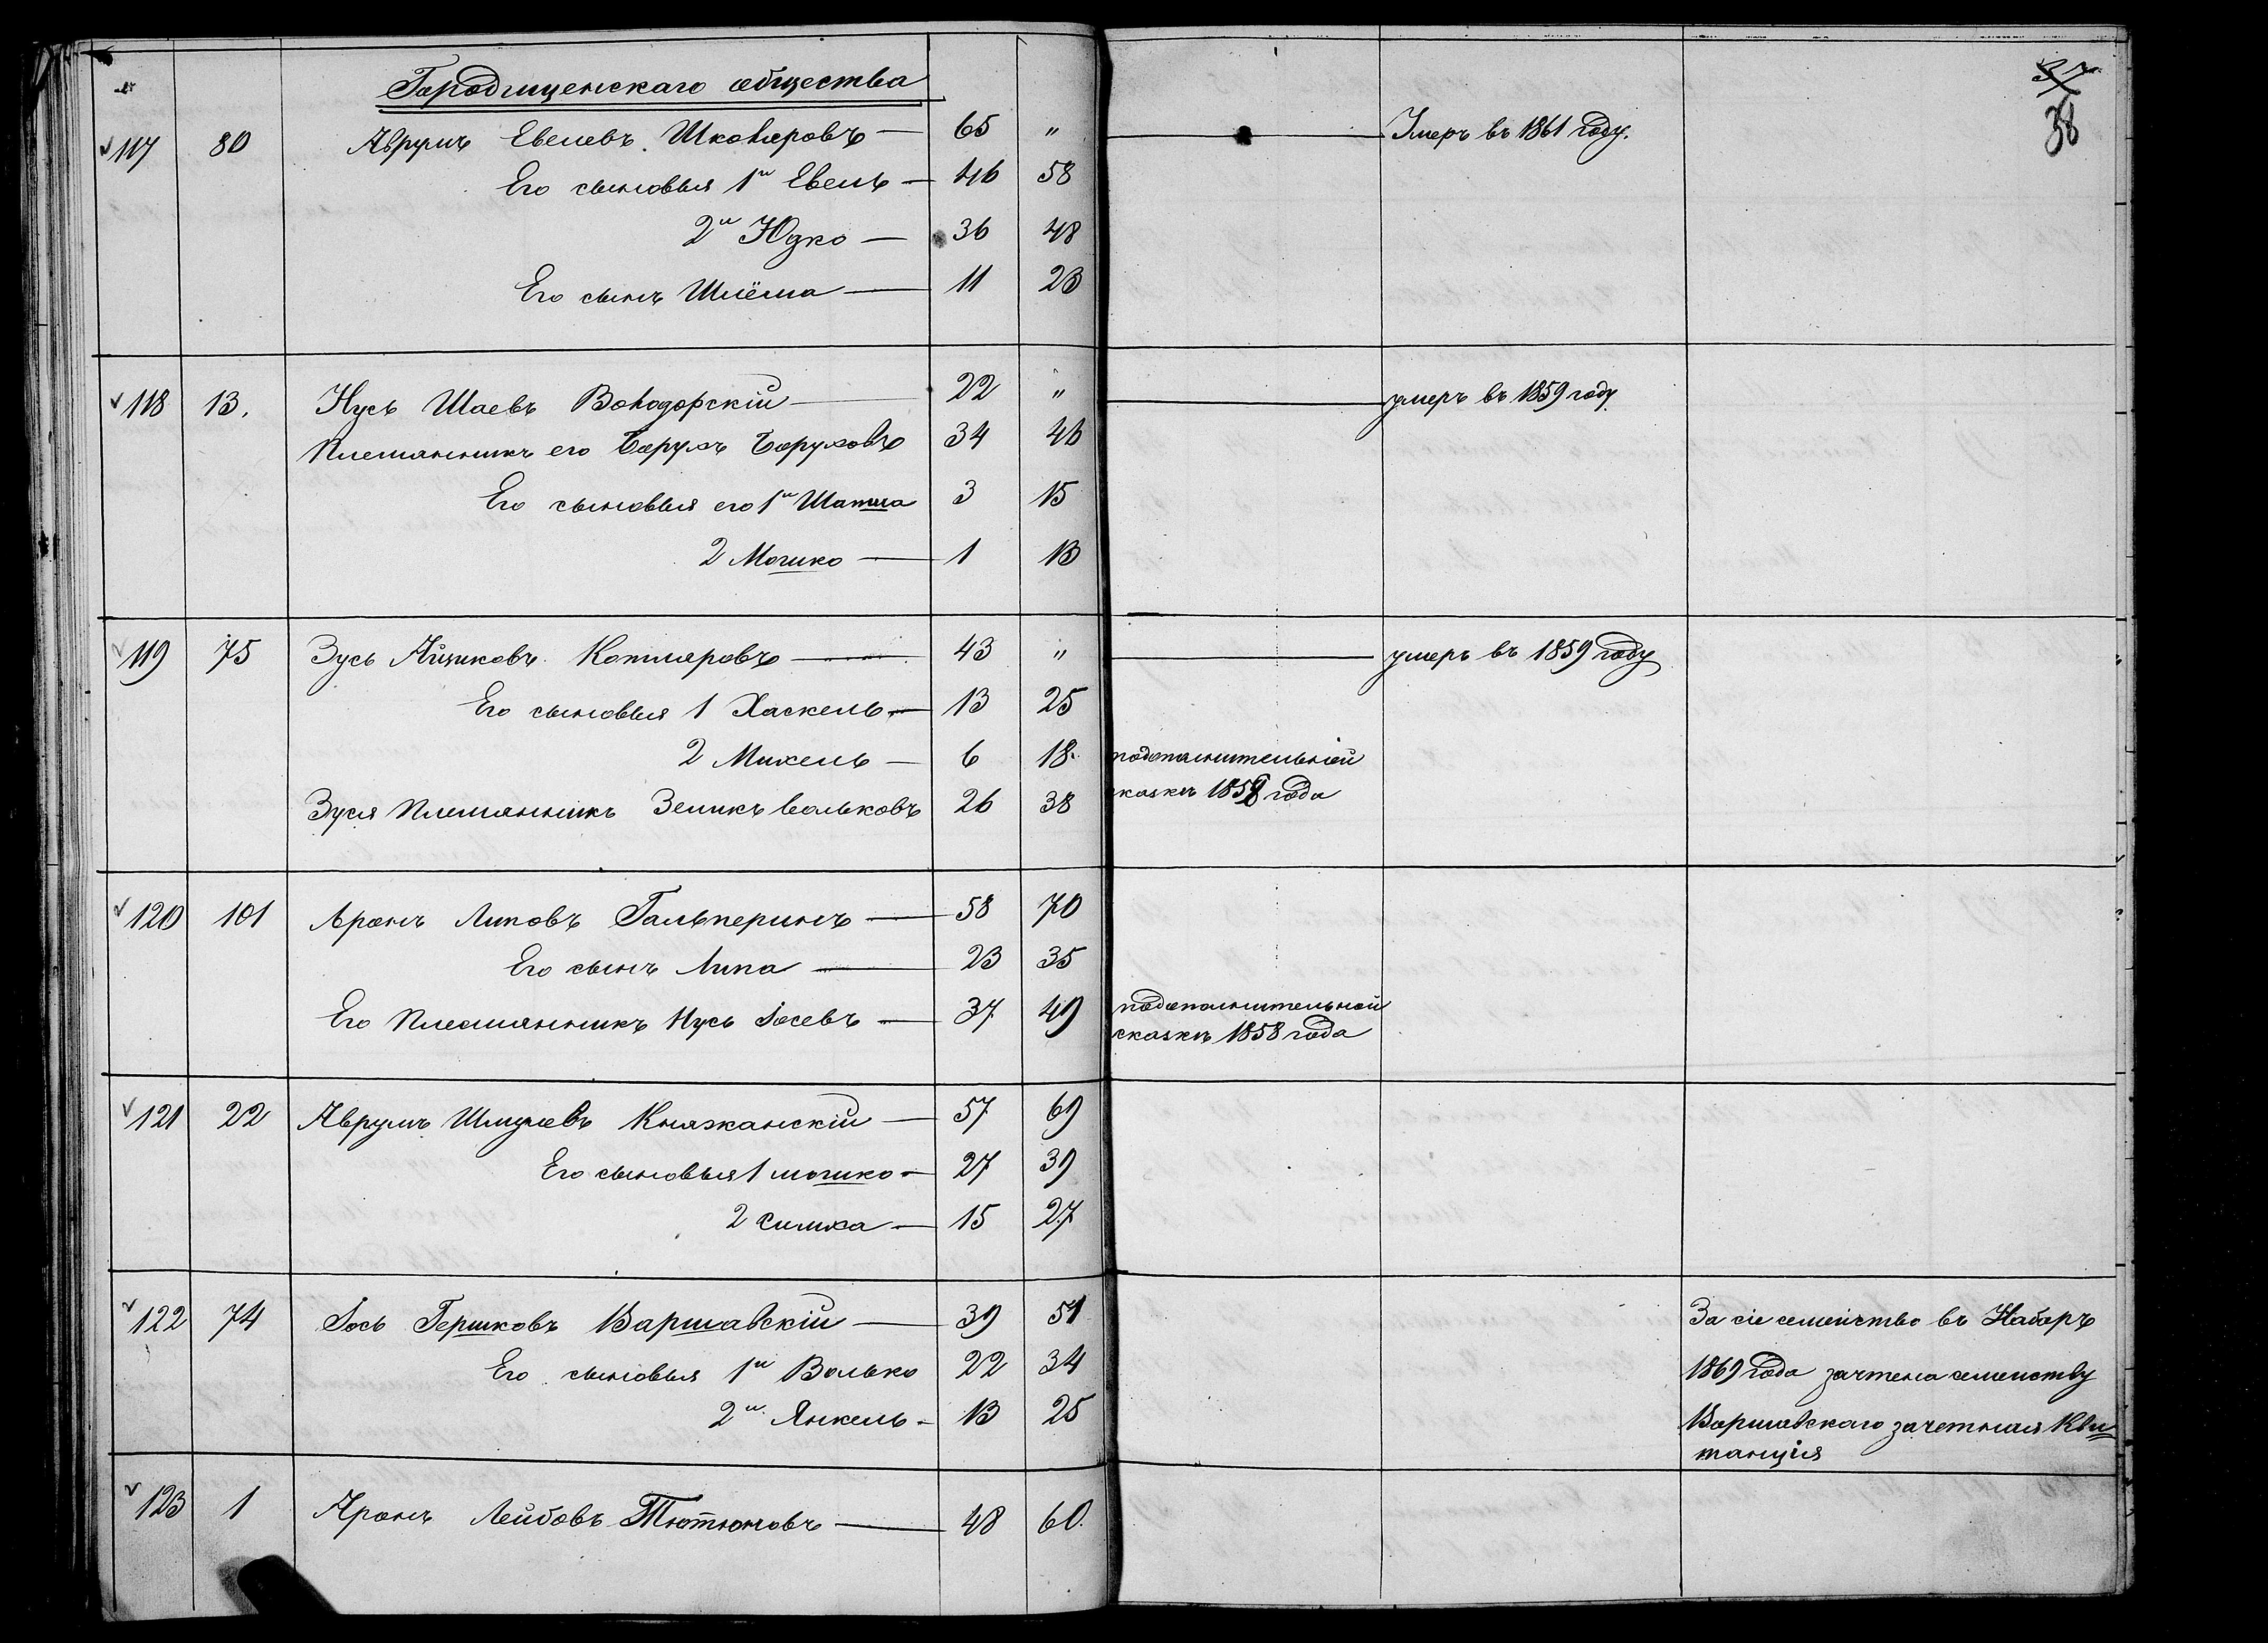 37
38
Городищенскаго общества
117 80 Аврумъ Евелевъ Школяровъ — 65 " — Умеръ въ 1861 году.
Его сыновья 1й Евель — 46 58
2й Юдко — 36 48
Его сынъ Шлёма — 11 23
118 13. Нусь Шаевъ Володорскій — 22 " — умеръ въ 1859 году
Племянникъ его Барухъ Баруховъ 34 46
Его сыновья его 1й Шапша 3 15
2 Мошко — 1 13
119 75 Зусь Айзиковъ Котляровъ — 43 " — умеръ въ 1859 году
Его сыновья 1 Хаскель — 13 25
2 Михель — 6 18. подополнительной
Зуся Племянникъ Зеликъ Вольковъ 26 38 сказкѣ 1858 года
120 101 Аронъ Липовъ Гальперинъ — 58 70
Его сынъ Липа — 23 35
Его Племянникъ Нусь Іосевъ — 37 49 подополнительной
сказкѣ 1858 года
121 22 Аврумъ Шмулевъ Княжанскій — 57 69
Его сыновья 1 мошко — 27 39
2 Симха — 15 27
122 74 Іось Гершковъ Варшавскій — 39 51 За сіе семейство въ Наборъ
Его сыновья 1й Волько 22 34 1869 года зачтена семейству
2й Янкель — 13 25 Варшавскаго зачетная Кви
танція
123 1 Аронъ Лейбовъ Тютюновъ — 48 60.